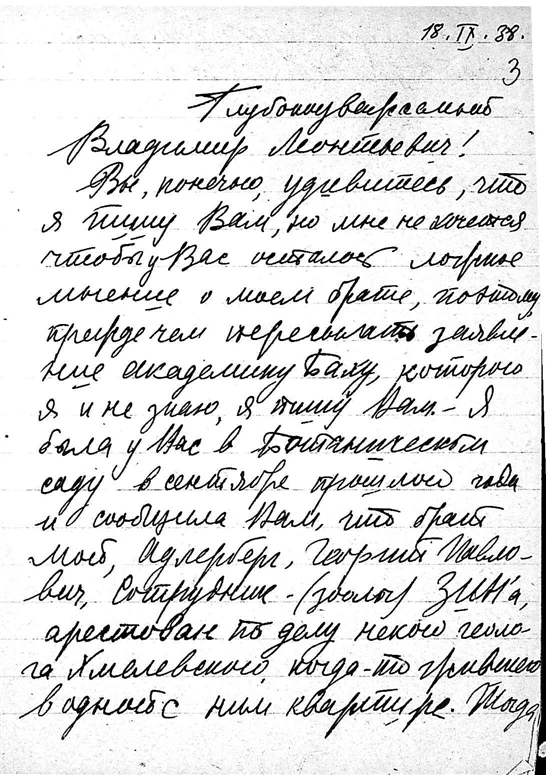 18. IX. 38.
3
Глубокоуважаемый
Владимир Леонтьевич!
Вы, конечно, удивитесь, что
я пишу Вам, но мне не хочется
чтобы у Вас осталось ложное
мнение о моем брате, поэтому,
прежде чем пересылать заявле-
ние академику Баху, которого
я и не знаю, я пишу Вам – Я
была у Вас в Ботаническом
саду в сентябре прошлого года
и сообщила Вам, что брат
мой, Адлерберг, Георгий Павло-
вич, Сотрудник – (зоолог) ЗИН'а,
арестован по делу некого геоло-
га Хмелевского, когда-то жившего
в одной с ним квартире. Тогда